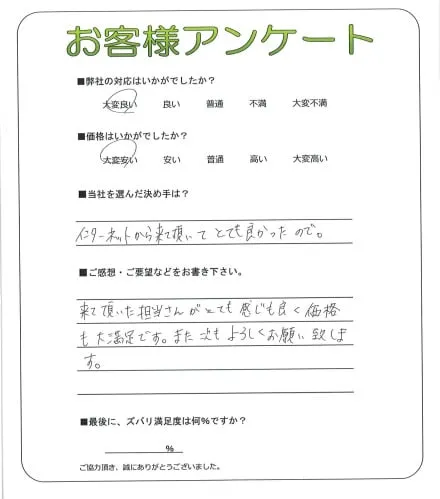 お客様アンケート
■弊社の対応はいかがでしたか？
大変良い 良い 普通 不満 大変不満
■価格はいかがでしたか？
大変安い 安い 普通 高い 大変高い
■当社を選んだ決め手は？
インターネットから来て頂いてとても良かったので。
■ご感想・ご要望などをお書き下さい。
来て頂いた担当さんがとても感じも良く価格
も大満足です。また次もよろしくお願い致しま
す。
■最後に、ズバリ満足度は何％ですか？
％
ご協力頂き、誠にありがとうございました。